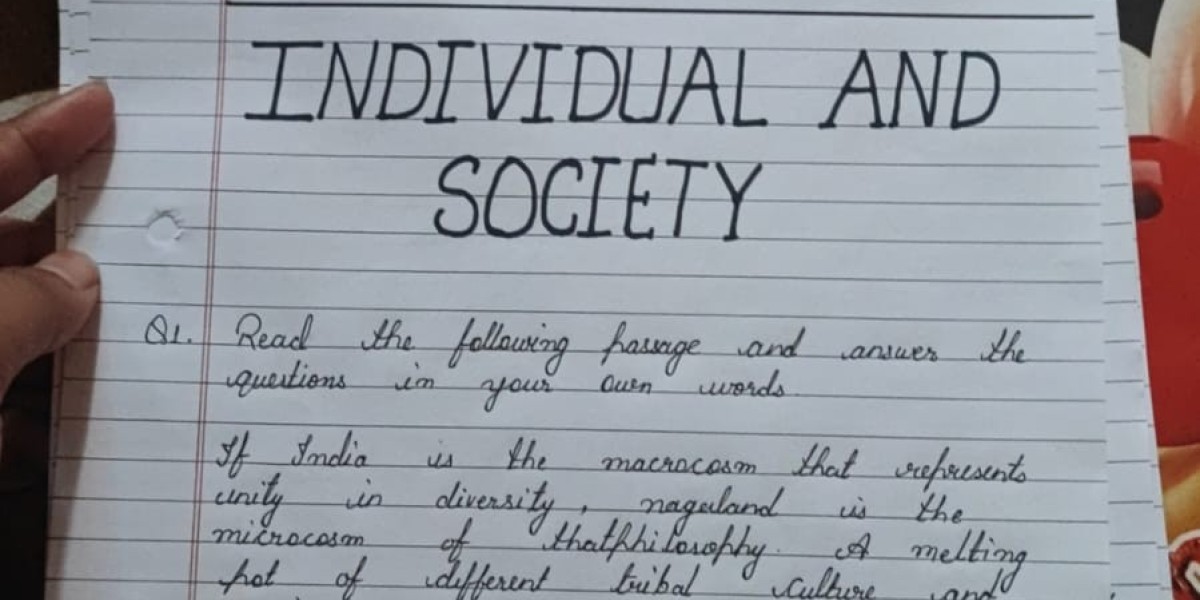 INDIVIDUAL AND
SOCIETY
Q1. Read the following passage and answer the
questions in your own words.
If India is the macrocosm that represents
unity in diversity, nagaland is the
microcosm of thatphilosophy. A melting
pot of different tribal culture and